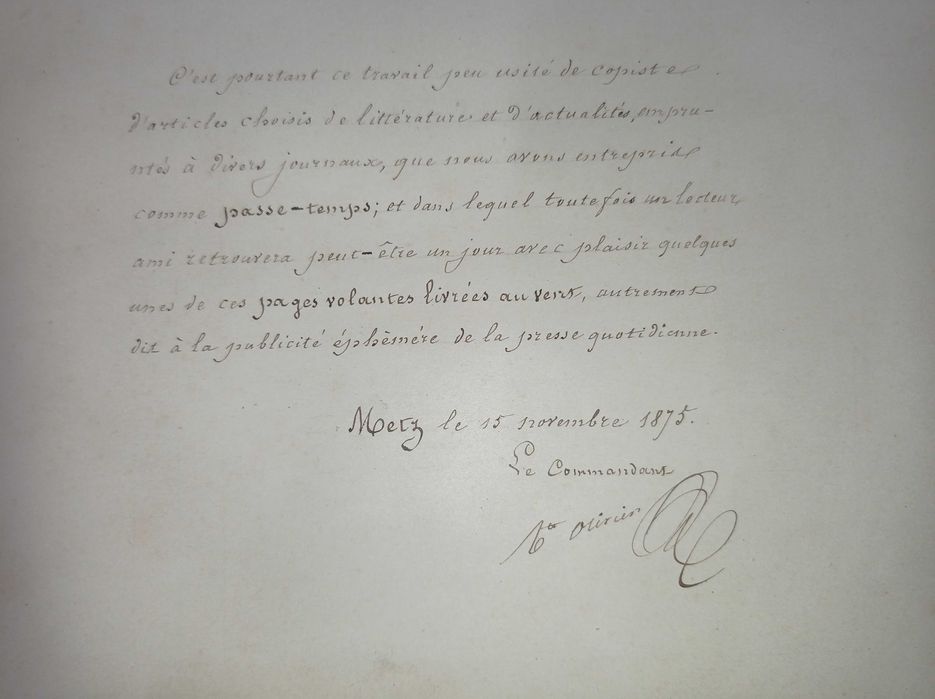 C'est pourtant ce travail peu usité de copiste
d'articles choisis de littérature et d'actualités, emprun-
ntés à divers journaux, que nous avons entrepris
comme passe-temps; et dans lequel toutefois un lecteur
ami retrouvera peut-être un jour avec plaisir quelques
unes de ces pages volantes livrées au vent, autrement
dit à la publicité éphémére de la presse quotidienne.
Metz le 15 novembre 1875.
Le Commandant